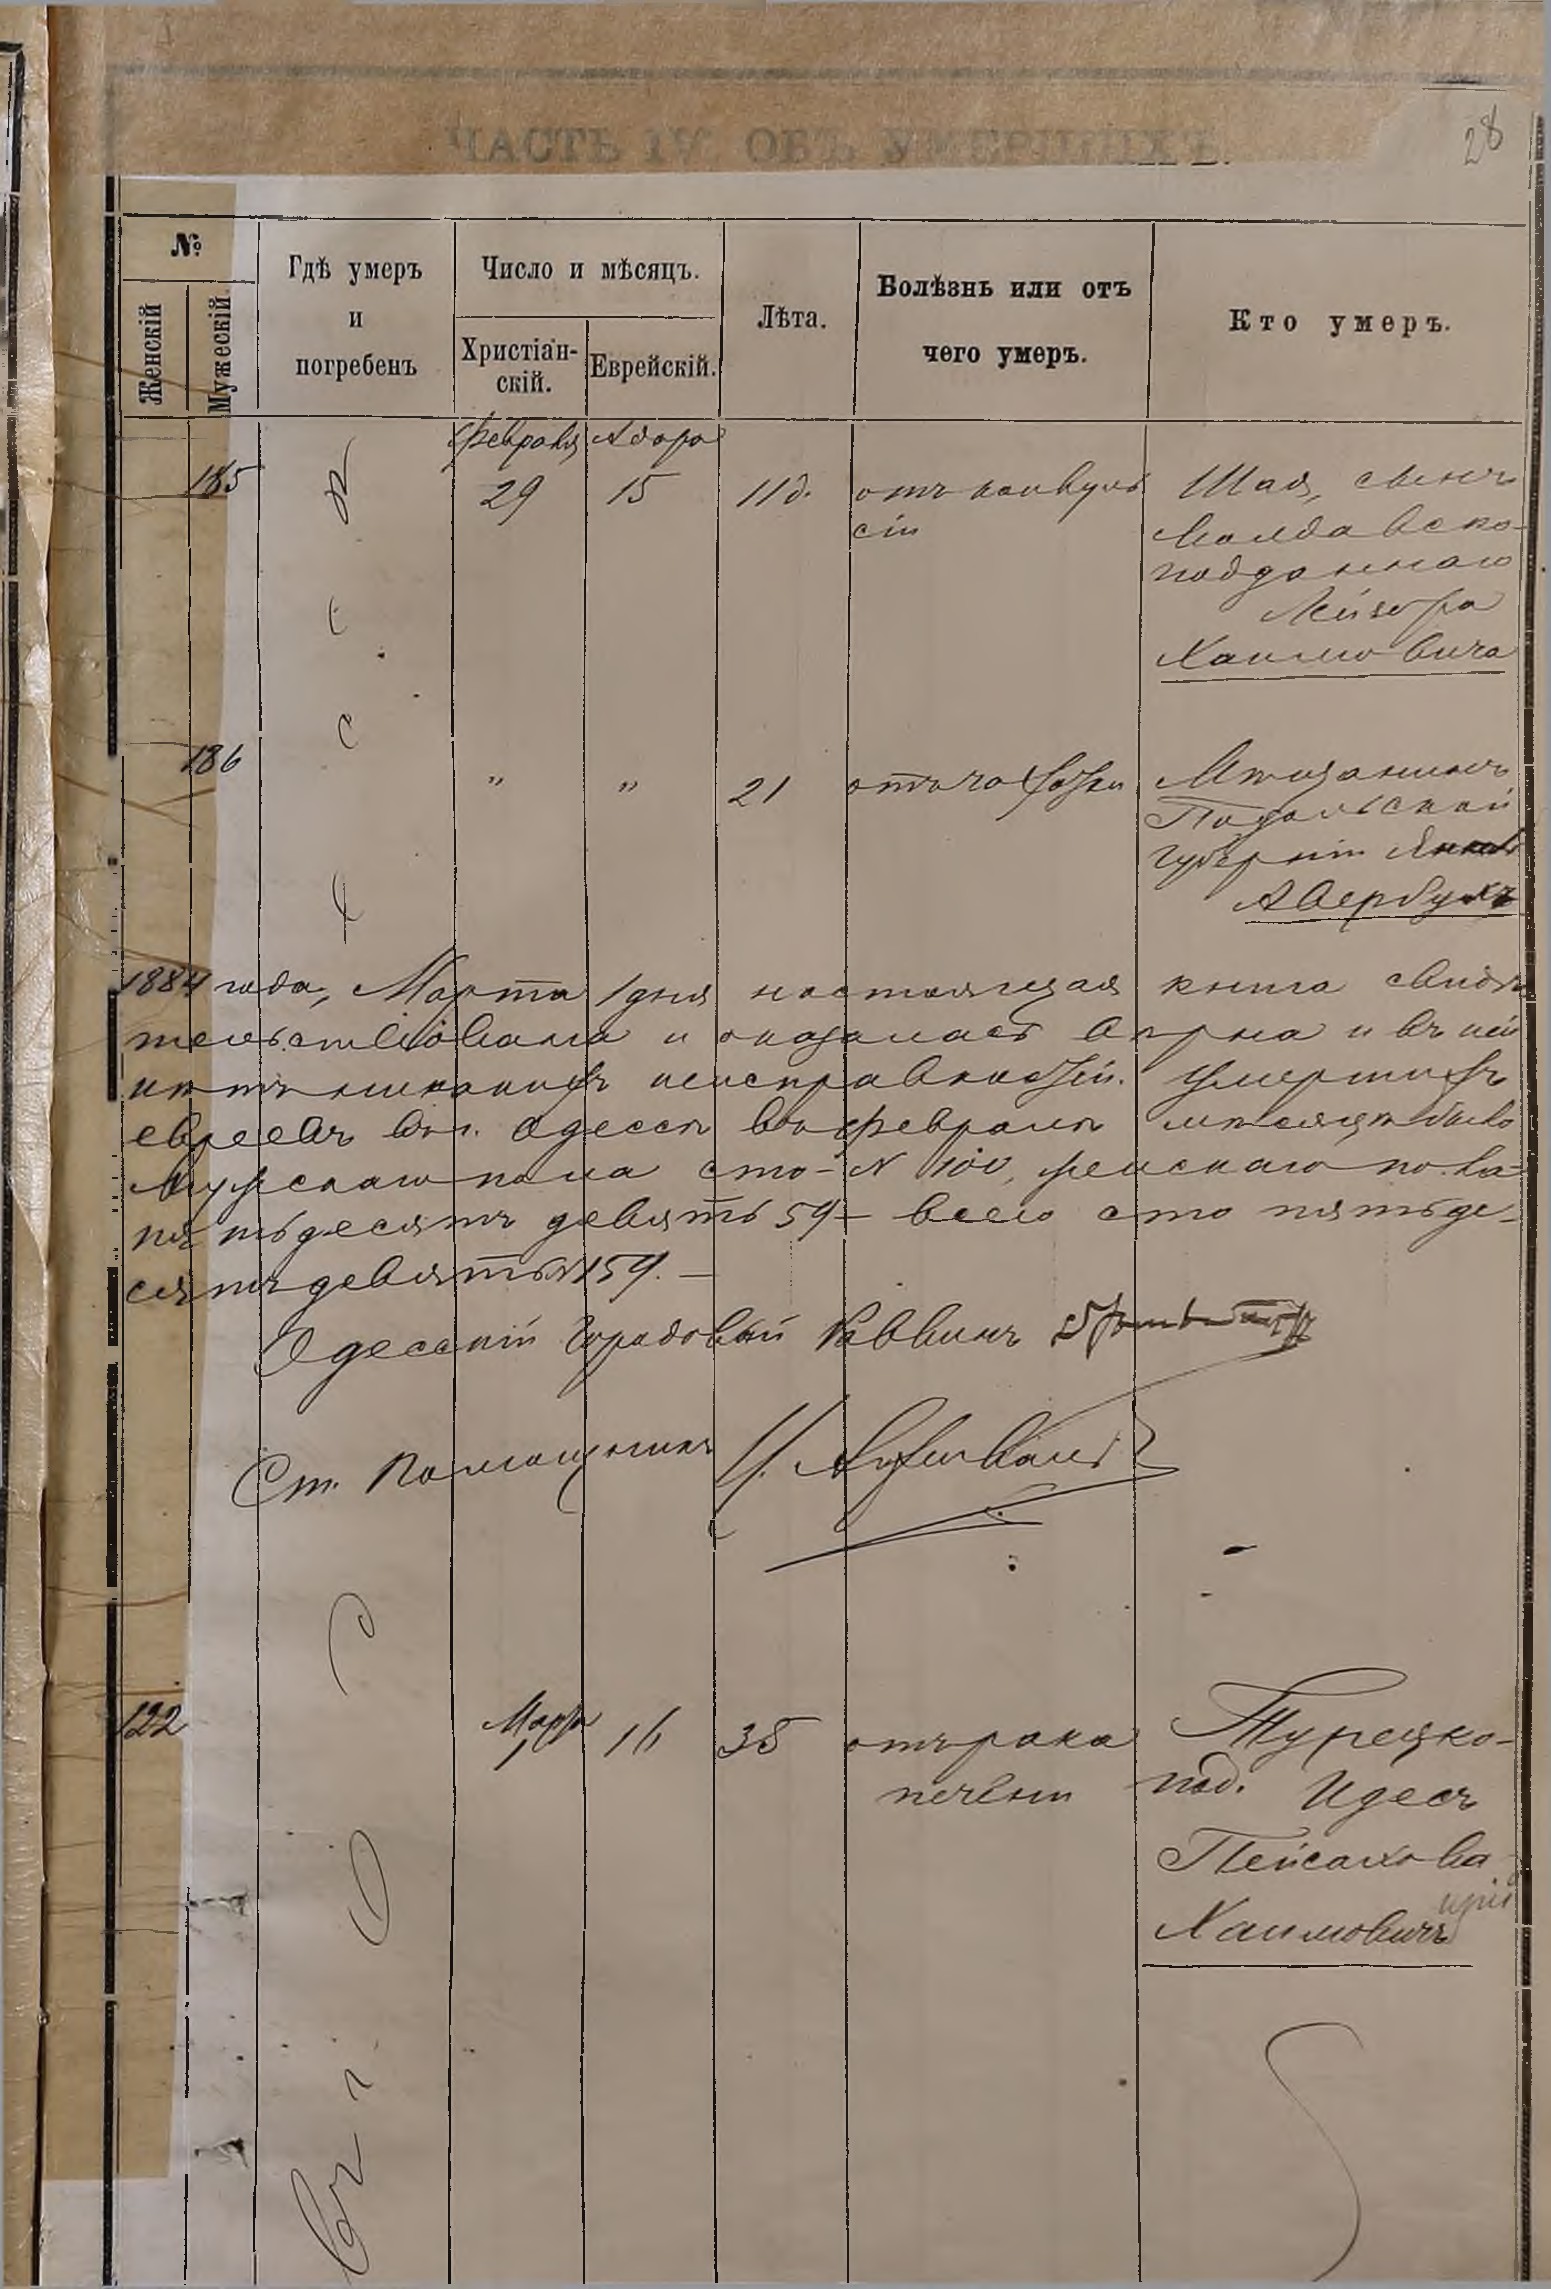 ЧАСТЬ IV. ОБЪ УМЕРШИХЪ.
28
№
Женскій
Мужескій.
Гдѣ умеръ
и
погребенъ
Число и мѣсяцъ.
Христіан-
скій.
Еврейскій.
Лѣта.
Болѣзнь или отъ
чего умеръ.
Кто умеръ.
Февраля Адара
185 29 15 11 д. отъ конвуль
сіи
Шая, сынъ
Молдавско-
подданнаго
Лейзера
Хаимовича
186 " " 21 отъ чахотки
Мѣщанинъ
Подольской
губерніи Янкель
Авербухъ
1884 года, Марта 1 дня настоящая книга свидѣ
тельствована и оказалась вѣрна и въ ней
нѣтъ никакихъ неисправностей. Умершихъ
евреевъ въ г. Одессѣ въ Феврале мѣсяцѣ было
Мужскаго пола сто - N 100, женскаго пола
пятьдесятъ девять 59 - всего сто пятьде-
сятъ девять N 159. -
Одесскій Городовой Раввинъ
Ст. Помощникъ
122 Марта
1 16 35 отъ рака
печени
Турецко-
под. Идесъ
Пейсахова
Хаимовичъ
въ г. Одессѣ